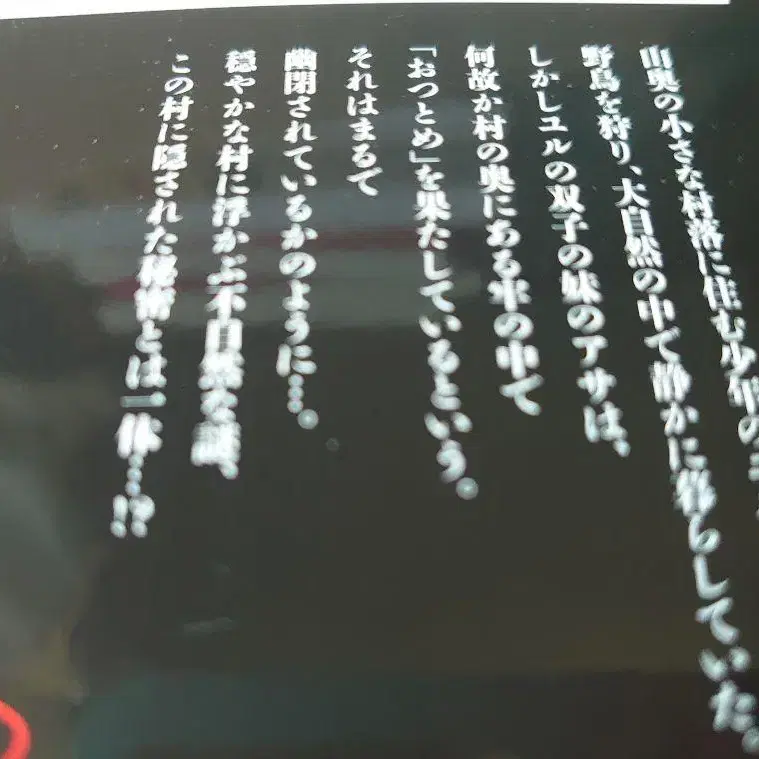 山奥の小さな村落に住む少年の
野鳥を狩り、大自然の中で静かに暮らしていた。
しかしユルの双子の妹のアサは、
何故か村の奥にある牢の中で
「おつとめ」を果たしているという。
それはまるで
幽閉されているかのように…。
穏やかな村に浮かぶ不自然な謎、
この村に隠された秘密とは一体…!?